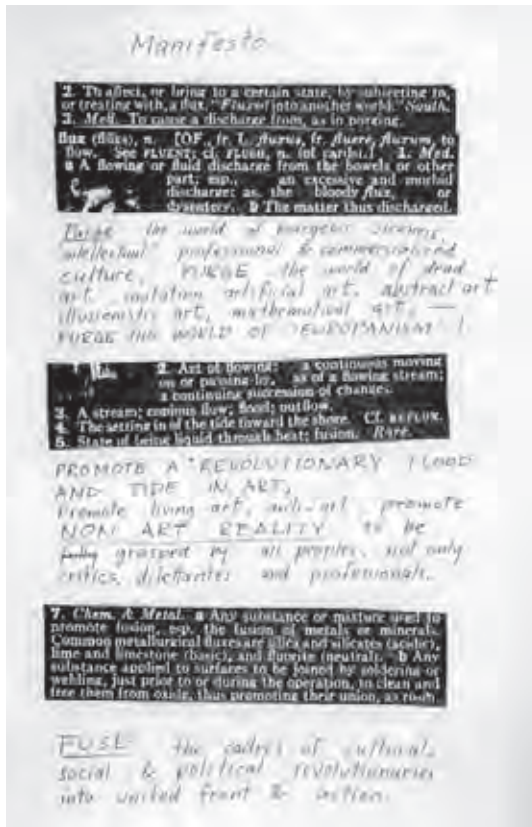 Manifesto
2. To affect, or bring to a certain state, by subjecting to,
or treating with, a flux. "Fluxed into another world." South.
3. Med. To cause a discharge from, as in purging.
flux (flŭks), n. [OF., fr. L. fluxus, fr. fluere, fluxum, to
flow. See FLUENT; cf. FLUSH, n. (of cards).] 1. Med.
a A flowing or fluid discharge from the bowels or other
part; esp., an excessive and morbid
discharge; as, the bloody flux, or
dysentery. b The matter thus discharged.
Purge the world of bourgeois sickness,
"intellectual", professional & commercialized
culture, PURGE the world of dead
art, imitation, artificial art, abstract art,
illusionistic art, mathematical art, —
PURGE THE WORLD OF "EUROPANISM"!
2. Act of flowing: a continuous moving
on or passing by, as of a flowing stream;
a continuing succession of changes.
3. A stream; copious flow; flood; outflow.
4. The setting in of the tide toward the shore. Cf. REFLUX.
5. State of being liquid through heat; fusion. Rare.
PROMOTE A REVOLUTIONARY FLOOD
AND TIDE IN ART,
Promote living art, anti-art, promote
NON ART REALITY to be
grasped by all peoples, not only
critics, dilettantes and professionals.
7. Chem. & Metal. a Any substance or mixture used to
promote fusion, esp. the fusion of metals or minerals.
Common metallurgical fluxes are silica and silicates (acidic),
lime and limestone (basic), and fluorite (neutral). b Any
substance applied to surfaces to be joined by soldering or
welding, just prior to or during the operation, to clean and
free them from oxide, thus promoting their union, as rosin.
FUSE the cadres of cultural,
social & political revolutionaries
into united front & action.